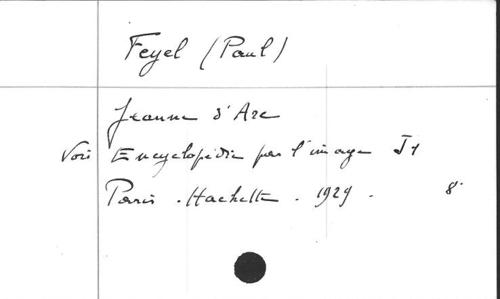 Feyel (Paul)
Jeanne d'Arc
Voir Encyclopédie par l'image J1
Paris . Hachette . 1929 . 8°